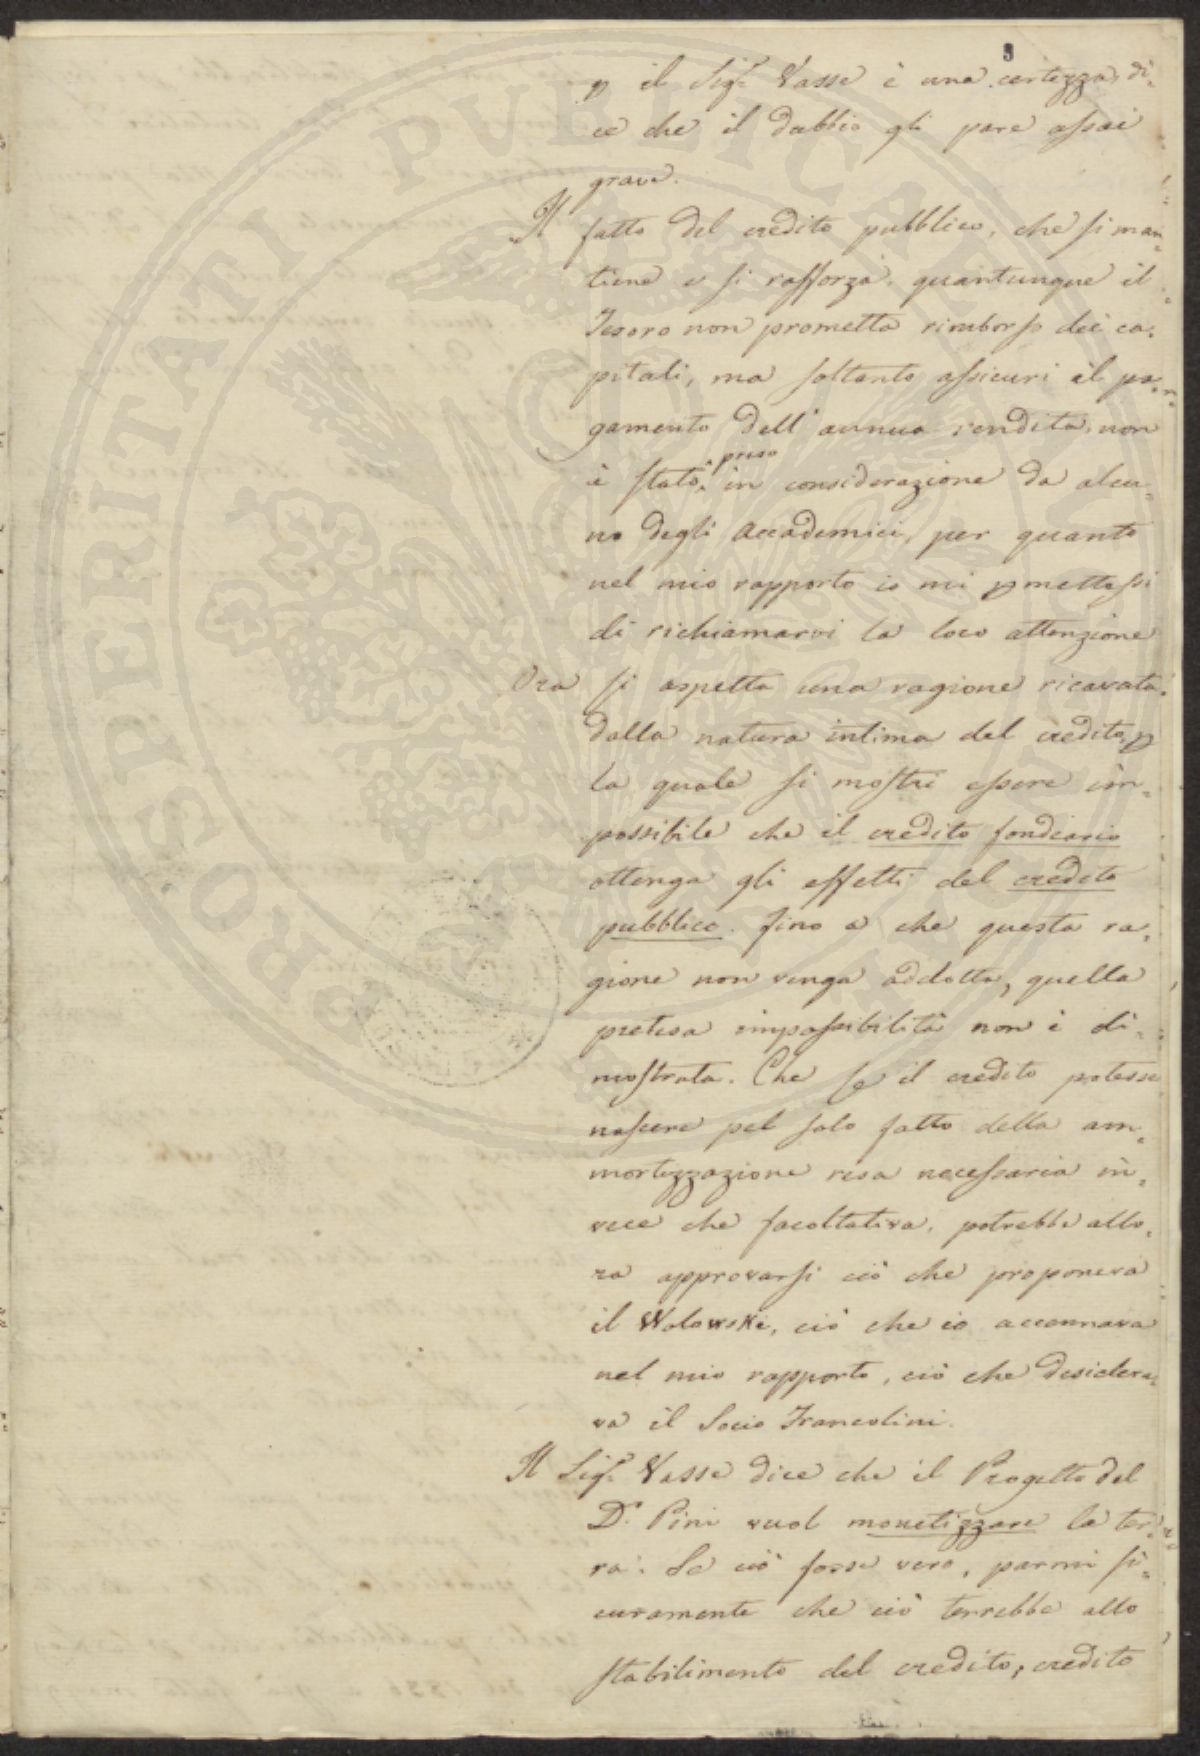 3
p il Sig.r Vasse è una certezza, di=
ce che il dubbio gli pare assai
grave.
Il fatto del credito pubblico, che si man=
tiene e si rafforza quantunque il
Tesoro non prometta rimborso dei ca=
pitali, ma soltanto assicuri il pa=
gamento dell'annua rendita, non
è stato preso in considerazione da alcu=
no degli Accademici, per quanto
nel mio rapporto io mi pmettessi
di richiamarvi la loro attenzione
Ora si aspetta una ragione ricavata
dalla natura intima del credito, p
la quale si mostri essere im=
possibile che il credito fondiario
ottenga gli effetti del credito
pubblico. Fino a che questa ra=
gione non venga addotta, quella
pretesa impossibilità non è di=
mostrata. Che se il credito potesse
nascere pel solo fatto della am=
mortizzazione resa necessaria in=
vece che facoltativa, potrebbe allo=
ra approvarsi ciò che proponeva
il Wolowski, ciò che io accennava
nel mio rapporto, ciò che desidera=
va il Socio Francolini.
Il Sig.r Vasse dice che il Progetto del
D.r Pini vuol monetizzare la ter=
ra. Se ciò fosse vero, parmi si=
curamente che ciò terrebbe allo
stabilimento del credito, credito
PROSPERITATI PUBLICAE